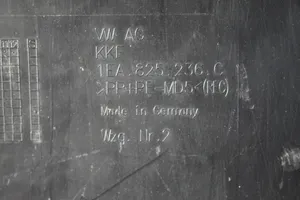 VW AG
KKF
1EA.825.236.C
>PP+PE-MD5<
Made in Germany
Wzg. Nr. 2